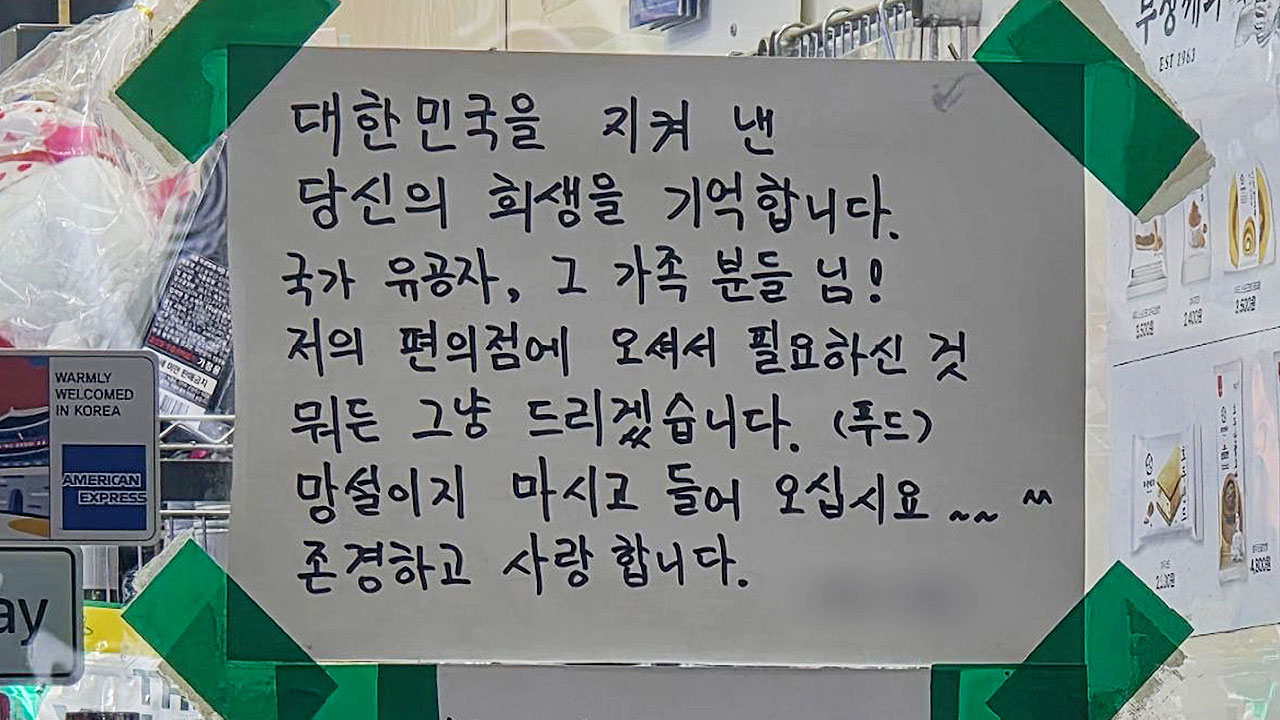 대한민국을 지켜 낸
당신의 희생을 기억합니다.
국가 유공자, 그 가족 분들 님!
저의 편의점에 오셔서 필요하신 것
뭐든 그냥 드리겠습니다. (푸드)
망설이지 마시고 들어 오십시요 ~~ ^^
존경하고 사랑합니다.
WARMLY
WELCOMED
IN KOREA
AMERICAN
EXPRESS
ay
EST 1963
3,500원
2,400원
3,500원
4,800원